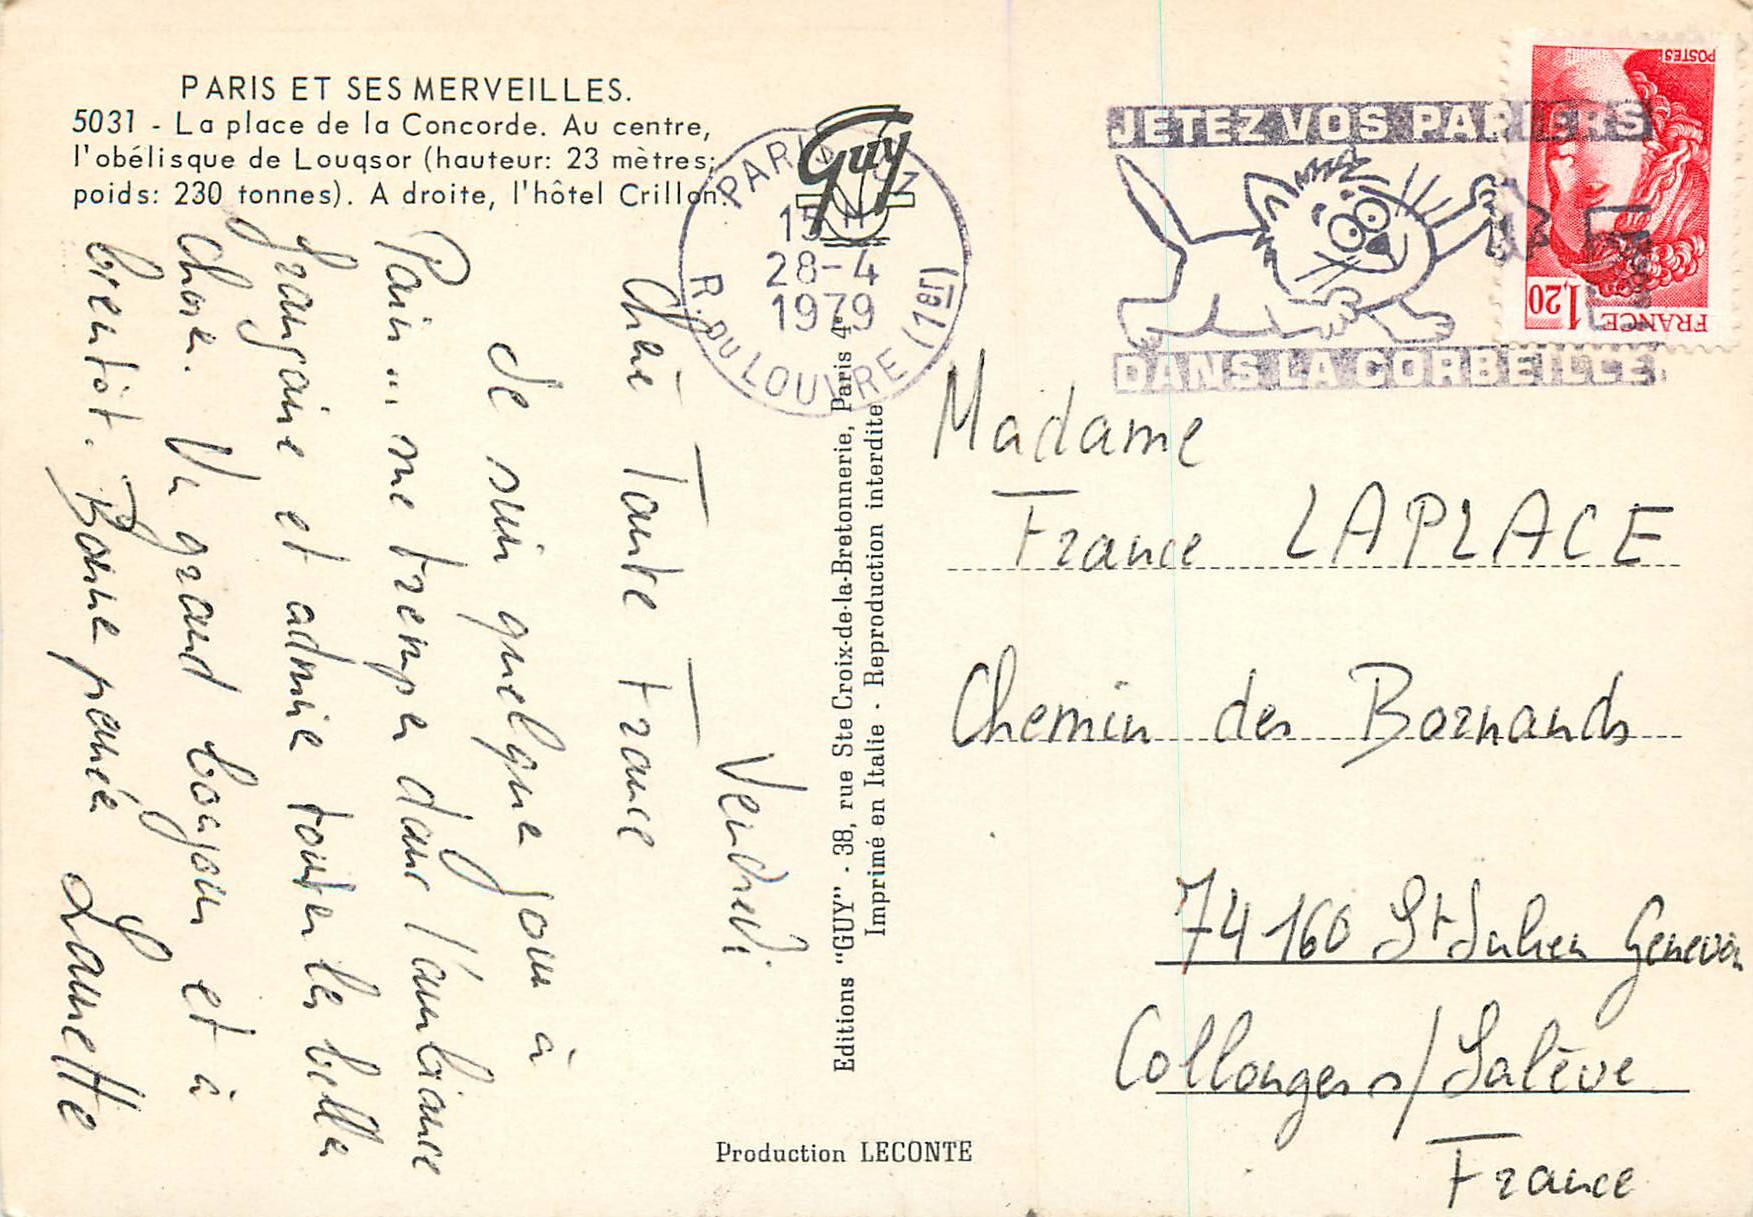 PARIS ET SES MERVEILLES.
5031 - La place de la Concorde. Au centre,
l'obélisque de Louqsor (hauteur: 23 mètres;
poids: 230 tonnes). A droite, l'hôtel Crillon.
Guy
PARIS
15 H
28-4
1979
R. DU LOUVRE (1er)
JETEZ VOS PAPIERS
DANS LA CORBEILLE
POSTES
1,20
FRANCE
Vendredi
Chère Tante France
Je suis quelque jour à
Paris ... me tremper dans l'ambiance
française et admire toutes les belle
chose. Un grand bonjour et à
bientôt. Bonne pensée Lanette
Editions "GUY" - 38, rue Ste Croix-de-la-Bretonnerie, Paris 4e
Imprimé en Italie - Reproduction interdite
Production LECONTE
Madame
France LAPLACE
Chemin des Bornands
74160 St Julien Genevois
Collonges s/Salève
France